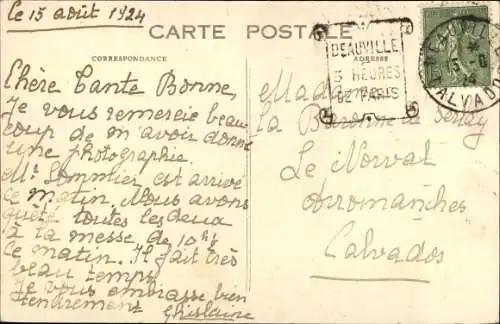 Le 15 août 1924
CARTE POSTALE
CORRESPONDANCE
ADRESSE
Chère Tante Bonne,
Je vous remercie beau
coup de m'avoir donné
une photographie.
Mr Sommier est arrivé
ce matin. Nous avons
quêté toutes les deux
à la messe de 10h½
ce matin. Il fait très
beau temps
Je vous embrasse bien
tendrement Ghislaine
DEAUVILLE
3 HEURES
DE PARIS
DEAUVILLE
15 - 8
24
CALVADOS
Madame
La Baronne de
Le Norvat
Arromanches
Calvados